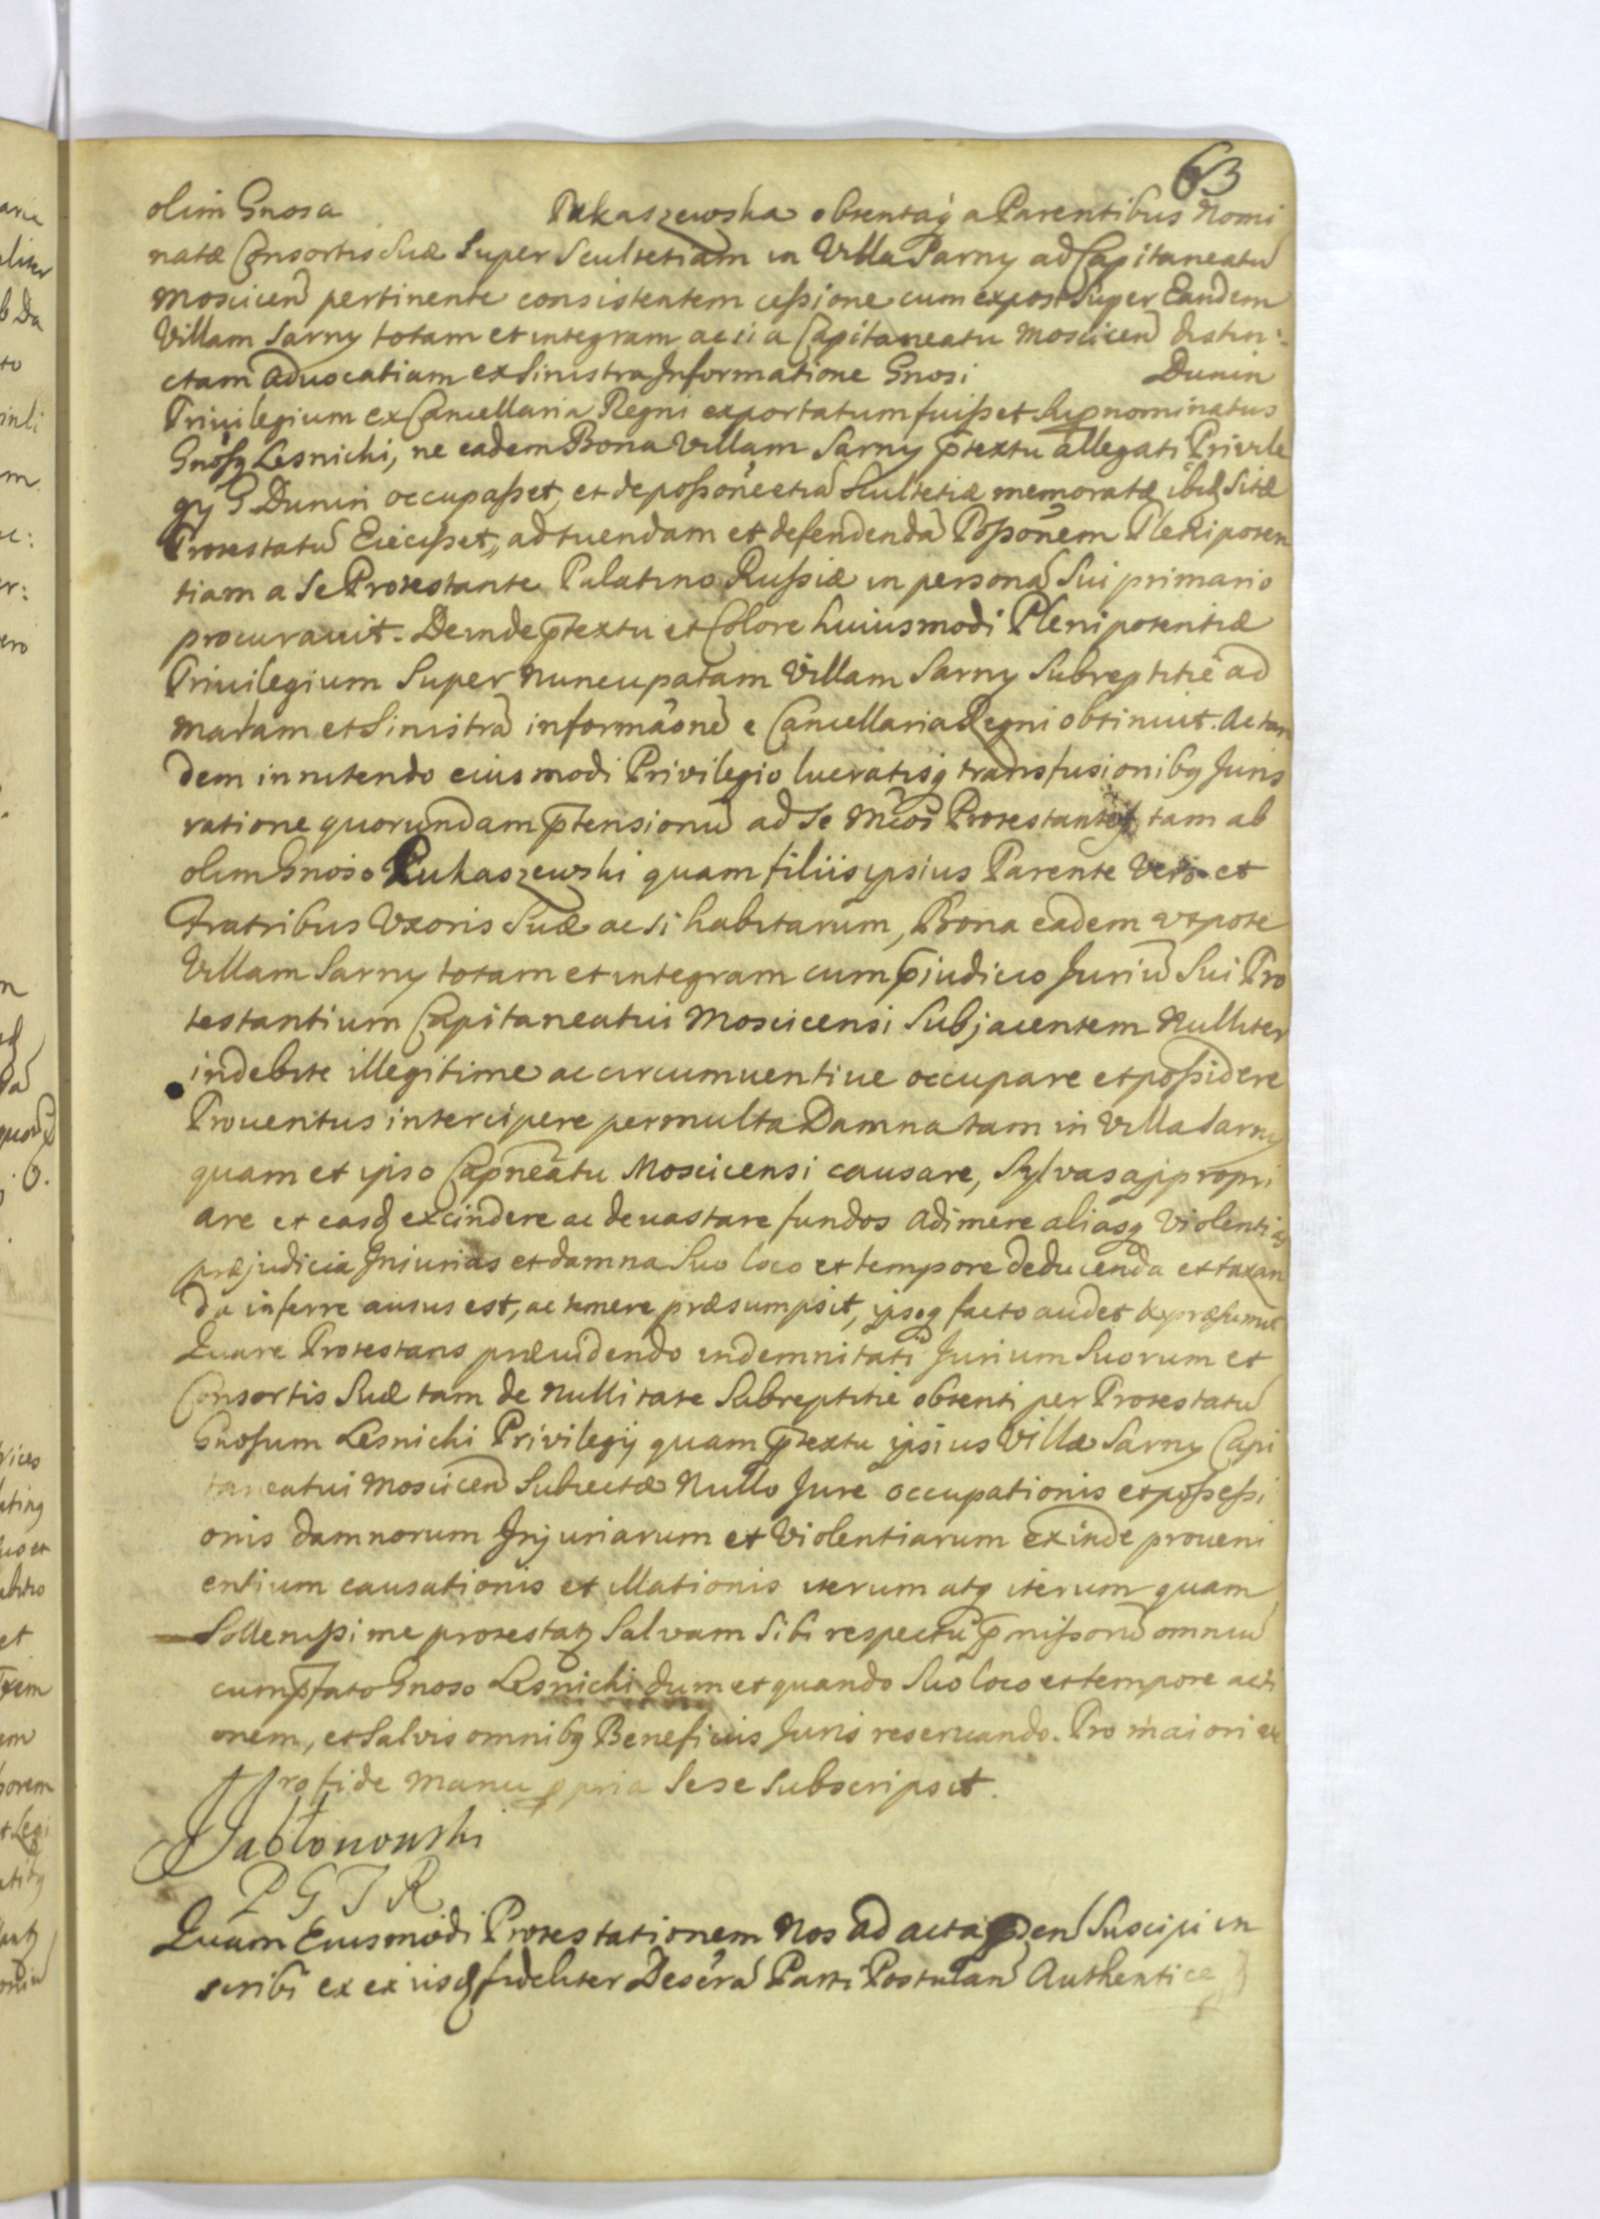 63
olim Gnosa Łukaszewska obtentaq a Parentibus Nomi
natæ Consortis Suæ Super Scultetiam in Villa Sarny ad Capitaneatū
Moscicen pertinente consistentem cessione cum expost Super Eandem
Villam Sarny totam et integram ac si a Capitaneatu Moscicen distin:
ctam Aduocatiam ex Sinistra Informatione Gnosi Dunin
Priuilegium ex Cancellaria Regni exportatum fuisset supnominatus
Gnosq Lesnicki, ne eadem Bona Villam Sarny ptextu allegati Privile
gÿ G Dunin occupasset, et de possōne etiā Scultetiæ memoratæ ibidē Sitæ
Protestatū Eiecisset, ad tuendam et defendendā Possōnem Plenipoten
tiam a Se Protestante Palatino Russiæ in personā Sui primario
procurauit. Deinde ptextu et Colore huiusmodi Plenipotentiæ
Priuilegium Super Nuncupatam Villam Sarny Subreptitiè ad
malam et Sinistrā informāonē e Cancellaria Regni obtinuit. Ac tan
dem innitendo eiusmodi Privilegio lucratisq transfusionibq Juris
ratione quorundam ptensionū ad Se Mcos Protestantes tam ab
olim Gnoso Łukaszewski quam filiis ipsius Parente Vero et
Fratribus Uxoris Suæ ac si habitarum, Bona eadem utpote
Villam Sarny totam et integram cum pjudicio Juriū Sui Pro
testantium Capitaneatui Moscicensi Subjacentem Nulliter
indebite illegitime ac circumuentiue occupare et possidere
Prouentus intercipere permulta Damna tam in Villa Sarny
quam et ipso Capneātu Moscicensi causare, Sylvas appropri
are et easq excindere ac deuastare fundos adimere aliasq Violentias
præjudicia Injurias et damna Suo loco et tempore deducenda et taxan
da inferre ausus est, ac temere præsumpsit, ipsoq facto audet & præsumit
Quare Protestans præuidendo indemnitati Jurium Suorum et
Consortis Suæ tam de Nullitate Subreptitiè obtenti per Protestatū
Gnosum Lesnicki Privilegij quam ptextu ipsius Villæ Sarny Capi
taneatui Moscicen Subiectæ Nullo Jure occupationis et possessi
onis damnorum Injuriarum et Violentiarum exinde proueni
entium causationis et illationis iterum atq iterum quam
Sollenissime protestatq Salvam Sibi respectū pmissorū omniū
cum pfato Gnoso Lesnicki dum et quando Suo loco et tempore acti
onem, et Salvis omnibq Beneficiis Juris reseruando. Pro maiori
fide Manu ppria Sese Subscripsit.
Jabłonowski
P G T R
Quam Eiusmodi Protestationem Nos ad acta pden Suscipi in
scribi ex eiisq fideliter Deserā Parti Postulan Authentice